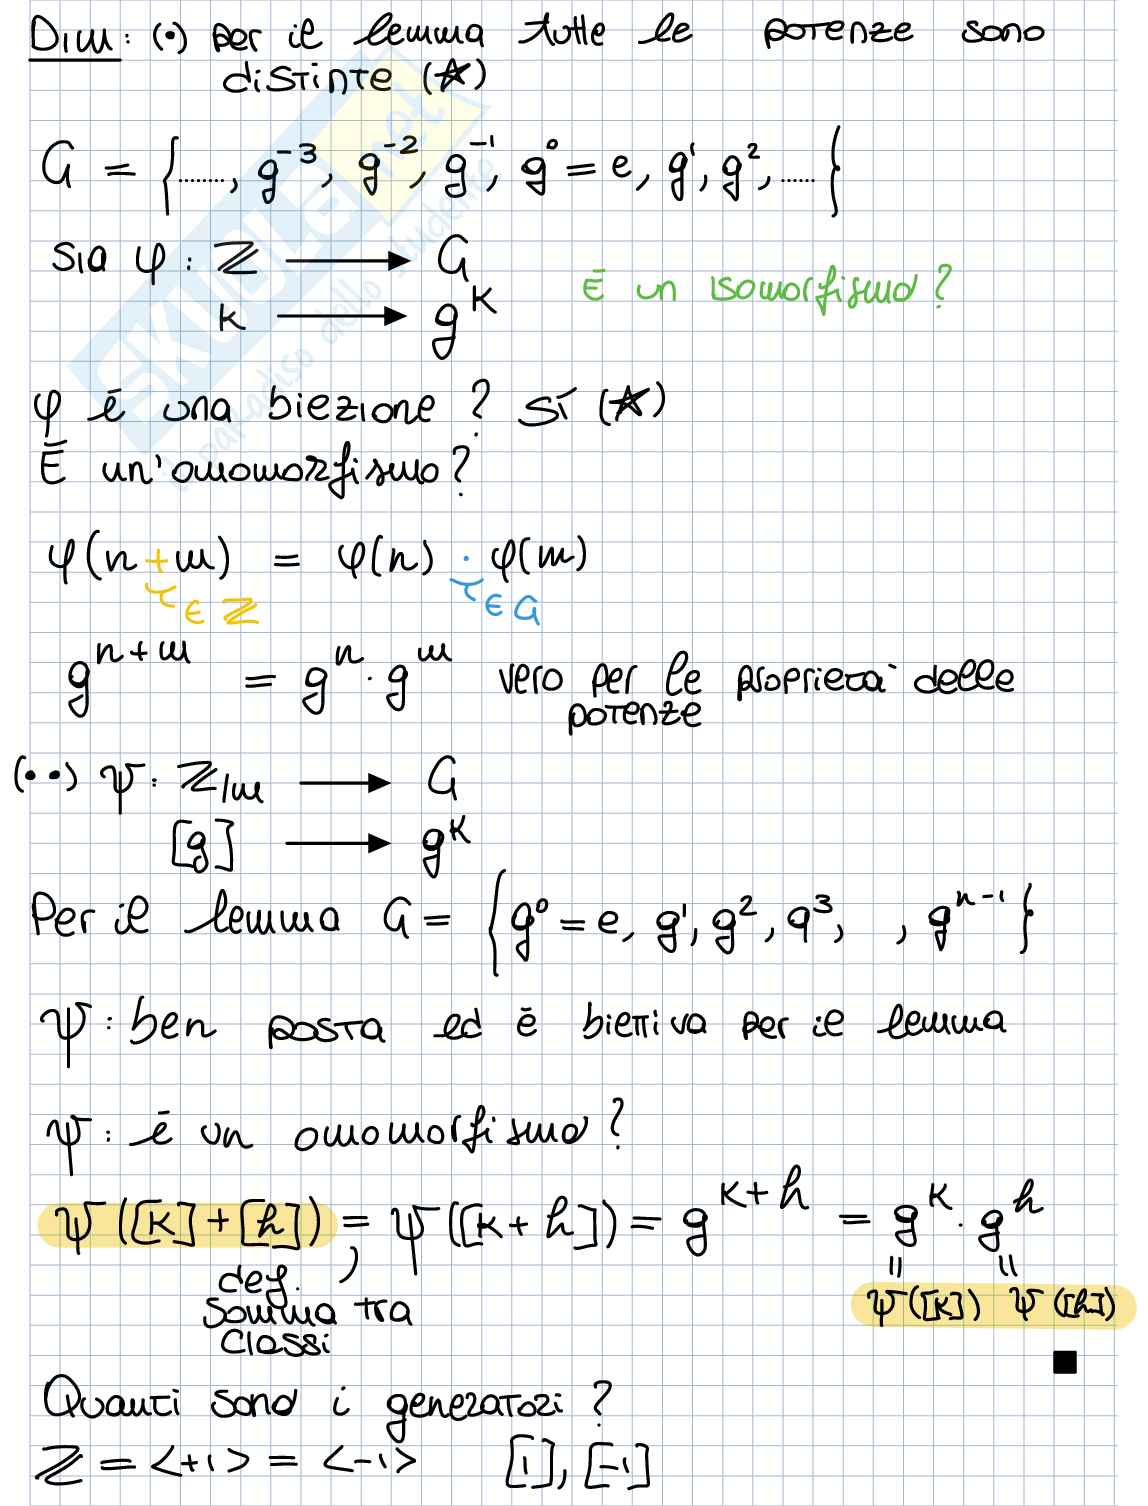 Dim: (•) per il lemma tutte le potenze sono
distinte (☆)
G = {........, g⁻³, g⁻², g⁻¹, g⁰ = e, g¹, g², ......}
sia φ : ℤ → G
k → g^k
È un isomorfismo?
φ è una biezione? Sí (☆)
È un'omomorfismo?
φ(n + m) = φ(n) · φ(m)
∈ ℤ ∈ G
g^{n+m} = g^n · g^m vero per le proprietà delle
potenze
(• •) ψ : ℤ/m → G
[g] → g^k
Per il lemma G = {g⁰ = e, g¹, g², g³, , g^{n-1}}
ψ : ben posta ed è biettiva per il lemma
ψ : è un omomorfismo?
ψ([k] + [h]) = ψ([k + h]) = g^{k+h} = g^k · g^h
def.
somma tra
classi
= =
ψ([k]) ψ([h])
■
Quanti sono i generatori?
ℤ = <+1> = <-1> [1], [-1]
SKUOLA.net
paradiso dello studente